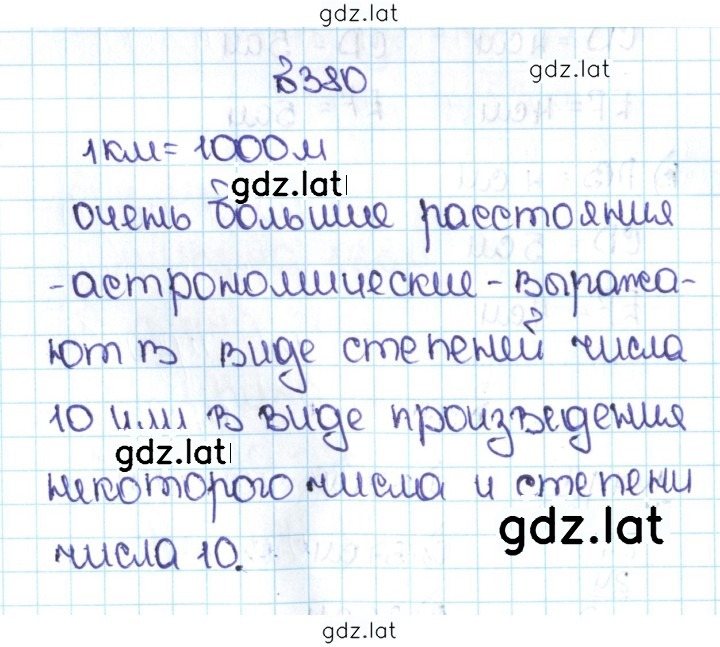 gdz.lat
в380
gdz.lat
1км = 1000м
gdz.lat
очень большие расстояния
-астрономические - выража-
ют в виде степеней числа
10 или в виде произведения
gdz.lat
некоторого числа и степени
gdz.lat
числа 10.
gdz.lat